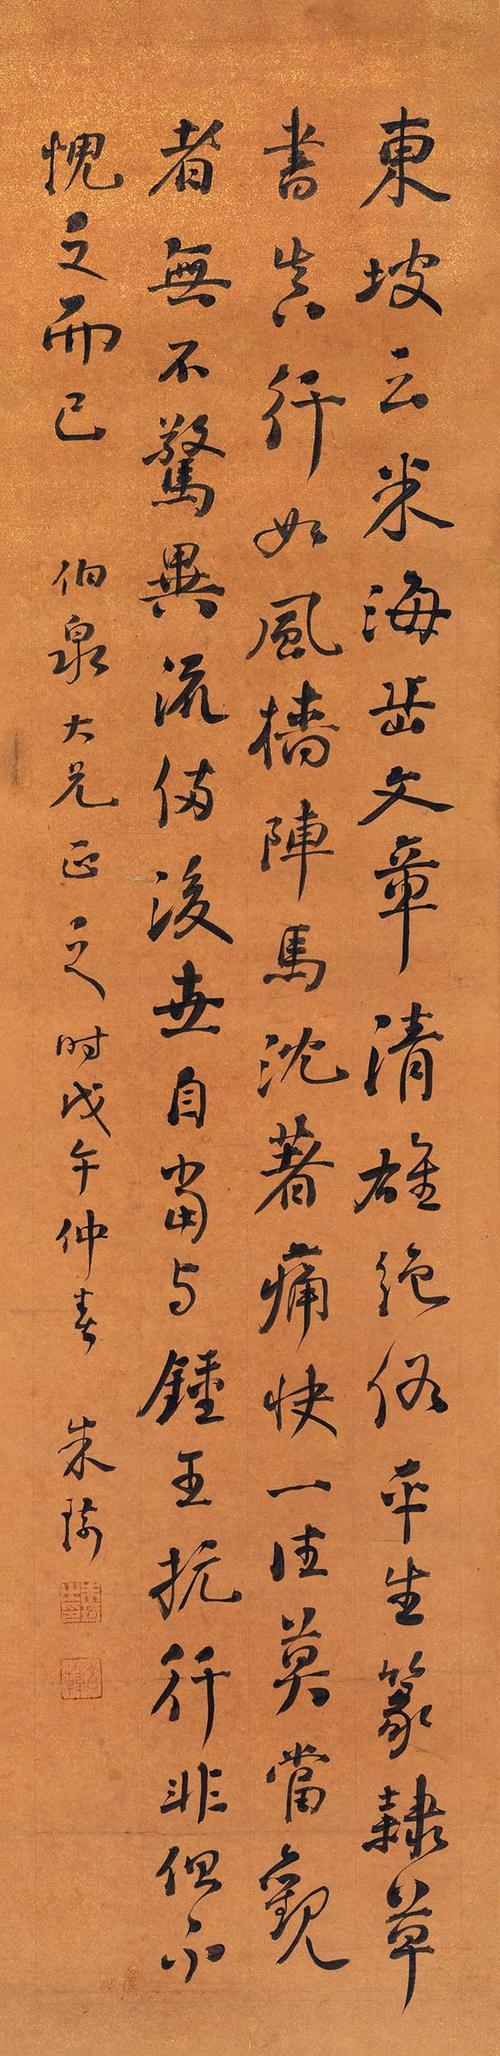 東坡云米海岳文章清雄絶俗平生篆隸草
書真行如風檣陣馬沈著痛快一往莫當觀
者無不驚異流傳後世自當与鍾王抗行非但不
愧之而已
伯泉大兄正之时戊午仲春
朱琦